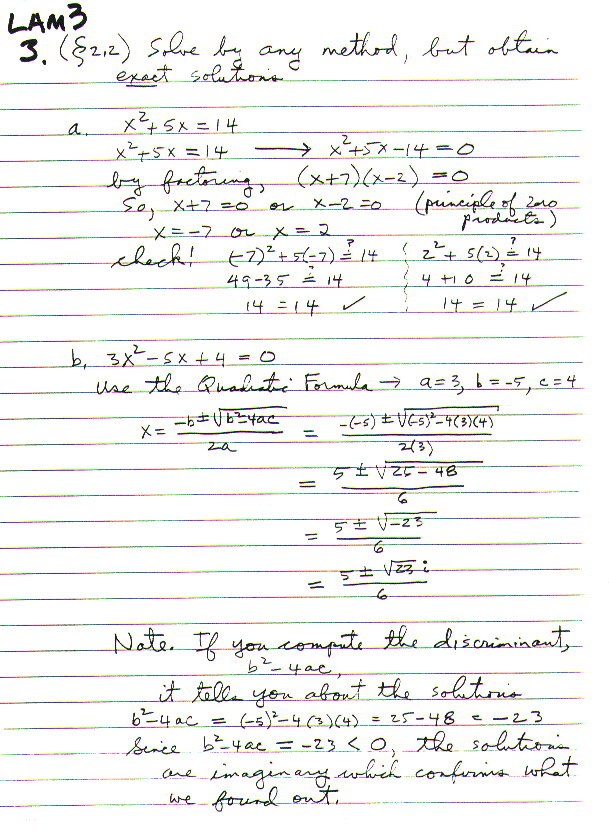 LAM3
3. (§2.2) Solve by any method, but obtain
exact solutions
a. x²+5x=14
x²+5x=14 → x²+5x-14=0
by factoring, (x+7)(x-2)=0
So, x+7=0 or x-2=0 (principle of zero products)
x=-7 or x=2
check! (-7)²+5(-7)≟14 2²+5(2)≟14
49-35≟14 4+10≟14
14=14 ✓ 14=14 ✓
b. 3x²-5x+4=0
Use the Quadratic Formula → a=3, b=-5, c=4
x= (-b±√(b²-4ac))/(2a) = (-(-5)±√((-5)²-4(3)(4)))/(2(3))
= (5±√(25-48))/6
= (5±√(-23))/6
= (5±√23 i)/6
Note. If you compute the discriminant,
b²-4ac,
it tells you about the solutions
b²-4ac = (-5)²-4(3)(4) = 25-48 = -23
Since b²-4ac = -23 < 0, the solutions
are imaginary which confirms what
we found out.